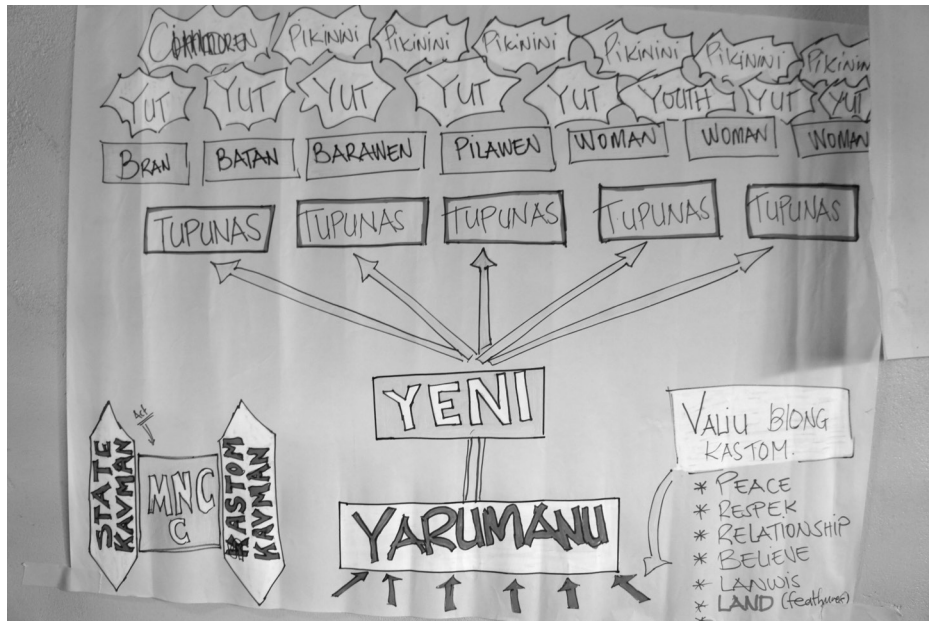 PIKININI PIKININI PIKININI PIKININI PIKININI PIKININ
YUT YUT YUT YUT YUT YOUTH YUT YUT
BRAN BATAN BARAWEN PILAWEN WOMAN WOMAN WOMAN
TUPUNAS TUPUNAS TUPUNAS TUPUNAS TUPUNAS
YENI
YARUMANU
Act
STATE
KAVMAN
MNC
C
KASTOM
KAVMAN
VALIU BLONG
KASTOM.
* PEACE
* RESPEK
* RELATIONSHIP
* BELIEVE
* LANWIS
* LAND